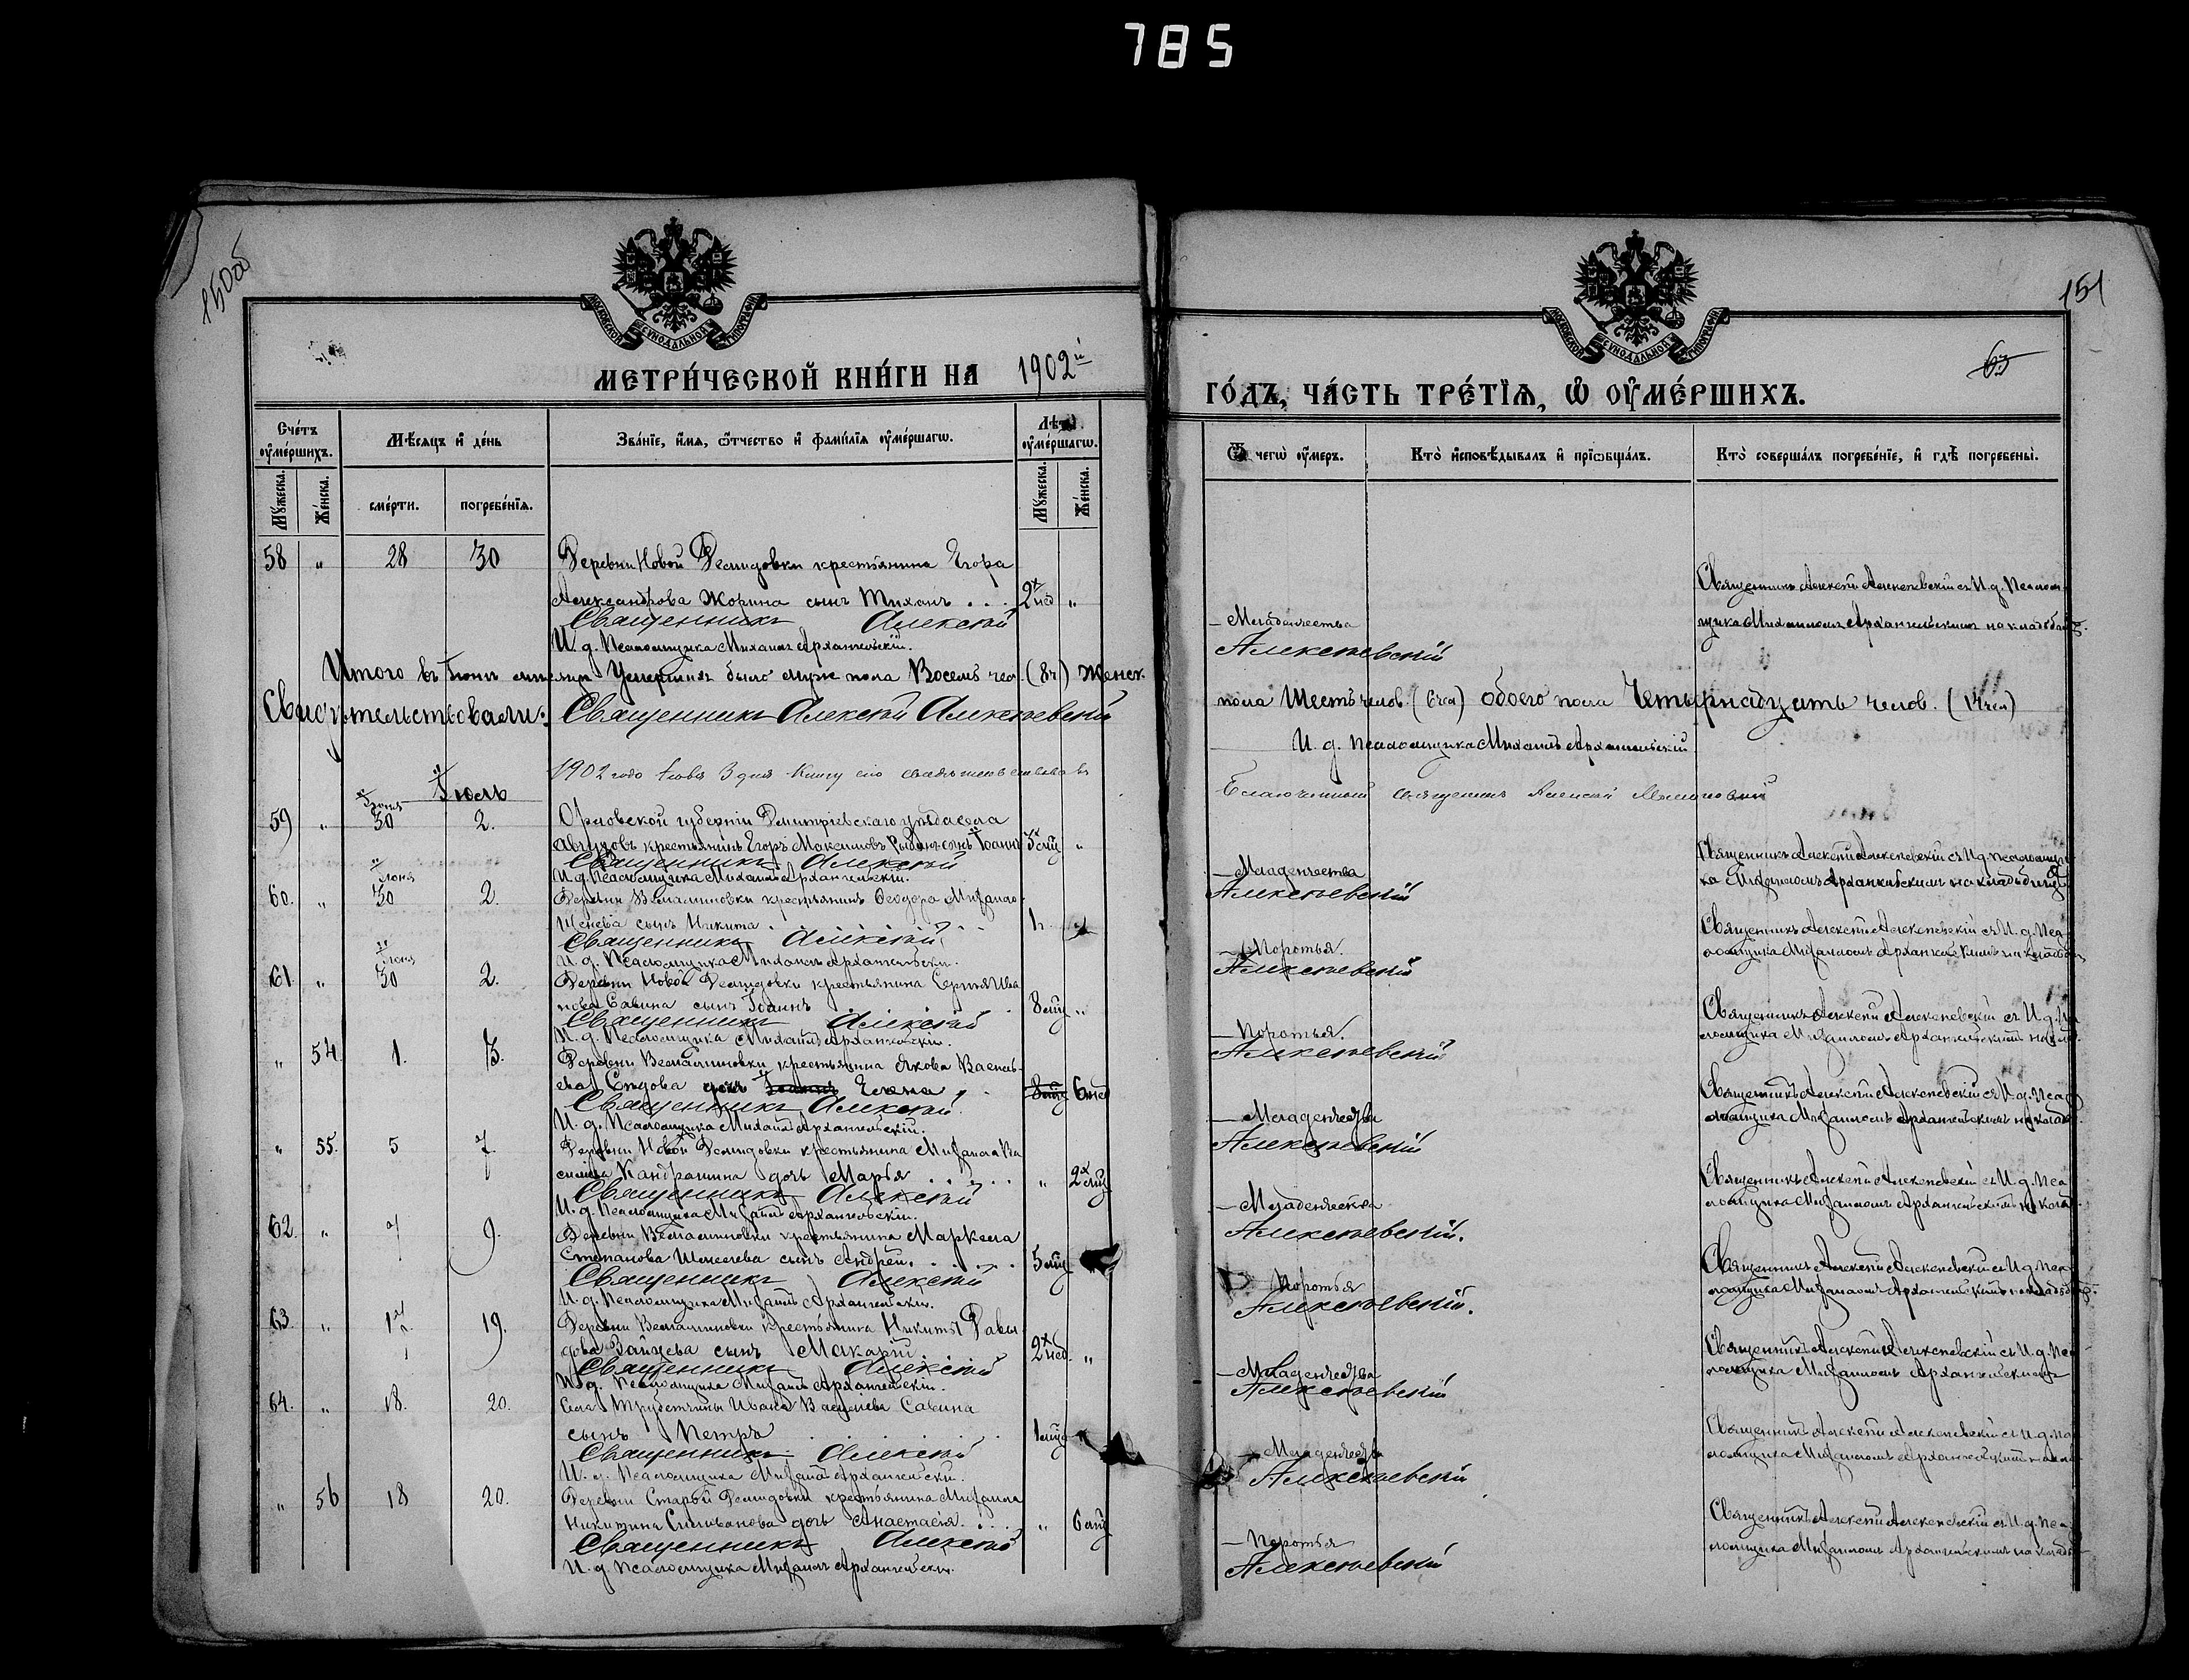 785
150об
151
63
МОСКОВСКОЙ СѴНОДАЛЬНОЙ ТИПОГРАФІИ
МОСКОВСКОЙ СѴНОДАЛЬНОЙ ТИПОГРАФІИ
МЕТРИ́ЧЕСКОЙ КНИ́ГИ НА 1902й
ГО́ДЪ, ЧА́СТЬ ТРЕ́ТІѦ, Ѿ ОУ҆МЕ́РШИХЪ.
Сче́тъ оу҆ме́ршихъ.
Мѣ́сяцъ и҆ де́нь
Зва́ніе, и҆́мя, ѻ҆́тчество и҆ фами́лія оу҆ме́ршагѡ.
Лѣта оу҆ме́ршагѡ.
Ѿ чегѡ̀ оу҆́меръ.
Кто̀ и҆сповѣ́дывалъ и҆ прїѡбща́лъ.
Кто̀ соверша́лъ погребе́нїе, и҆ гдѣ̀ погребены̀.
Мꙋ́жеска.
Же́нска.
сме́рти.
погребе́нїя.
Мꙋ́жеска.
Же́нска.
58 " 28 30 Деревни Новой Демидовки крестьянина Егора
Александрова Жорина сынъ Тихонъ . . . 2х нед "
Священникъ Алексій
И. д. Псаломщика Михаилъ Архангельскій.
— Младенчества
Алексеевскій
Священникъ Алексій Алексеевскій съ И. д. Псалом
щика Михаиломъ Архангельскимъ на кладбищѣ.
Итого въ Іюнѣ мѣсяцѣ Умершихъ было муж пола Восемь чел. (8ч) Женск.
пола Шесть челов. (6чел) обоего пола Четырнадцать челов. (14чел)
Свидѣтельствовали: Священникъ Алексій Алексеевскій
И. д. Псаломщика Михаилъ Архангельскій
1902 года Іюля 3 дня Книгу сію свидѣтельствовалъ
Благочинный священникъ Алексій
Іюль
59 " Іюня 30 2. Орловской губерніи Дмитріевскаго уѣзда села
крестьянинъ Егоръ Максимовъ сынъ Іоаннъ "
Священникъ Алексій
И. д. Псаломщика Михаилъ Архангельскій.
— Младенчества
Алексеевскій
Священникъ Алексій Алексеевскій съ И. д. псаломщи
ка Михаиломъ Архангельскимъ на кладбищѣ
60. " Іюня 30 2. Деревни Веніаминовки крестьянинъ Ѳеодора Михаило
сынъ Никита
Священникъ Алексій
И. д. Псаломщика Михаилъ Архангельскій.
— Поротья.
Алексеевскій
Священникъ Алексій Алексеевскій съ И. д. Пса
ломщика Михаиломъ Архангельскимъ на кладби
61 " Іюня 30 2. Деревни Новой Демидовки крестьянина Сергія Ива
нова Савина сынъ Іоаннъ 8 мѣц "
Священникъ Алексій
И. д. Псаломщика Михаилъ Архангельскій.
— Поротья.
Алексеевскій
Священникъ Алексій Алексеевскій съ И. д. Пса
ломщика Михаиломъ Архангельскимъ на клад.
" 54 1. 3. Деревни Веніаминовки крестьянина Якова Василь
ева Сѣдова дочь Елена 6 нед
Священникъ Алексій
И. д. Псаломщика Михаилъ Архангельскій.
— Младенчества
Алексеевскій
Священникъ Алексій Алексеевскій съ И. д. Пса
ломщика Михаиломъ Архангельскимъ на кладб.
" 55. 5 7 Деревни Новой Демидовки крестьянина Михаила Ва
сильева Кандрашина дочь Марья . . . . . " 2х мѣц
Священникъ Алексій
И. д. Псаломщика Михаилъ Архангельскій.
— Младенчества
Алексеевскій.
Священникъ Алексій Алексеевскій съ И. д. Пса
ломщика Михаиломъ Архангельскимъ на клад.
62. " 7 9. Деревни Веніаминовки крестьянина Маркела
Степанова сынъ Андрей. . . . . . 5 мѣц
Священникъ Алексій
И. д. Псаломщика Михаилъ Архангельскій.
Поротья
Алексеевскій.
Священникъ Алексій Алексеевскій съ И. д. Пса
ломщика Михаиломъ Архангельскимъ на кладбищѣ.
63. " 17. 19. Деревни Веніаминовки крестьянина Никиты Давы
дова Зайцева сынъ Макарій . . 2х нед. "
Священникъ Алексій
И. д. Псаломщика Михаилъ Архангельскій.
— Младенчества
Алексеевскій
Священникъ Алексій Алексеевскій съ И. д. Пса
ломщика Михаиломъ Архангельскимъ
64. " 18. 20. Села Трубетчины Ивана Васильева Савина
сынъ Петръ . . . 1 мѣц
Священникъ Алексій
И. д. Псаломщика Михаилъ Архангельскій.
— Младенчества
Алексеевскій
Священникъ Алексій Алексеевскій съ И. д. Пса
ломщика Михаиломъ Архангельскимъ на клад
" 56 18 20. Деревни Старой Демидовки крестьянина Михаила
Никитина Силиванова дочь Анастасія. . . . " 6 мѣц
Священникъ Алексій
И. д. Псаломщика Михаилъ Архангельскій.
— Поротья
Алексеевскій
Священникъ Алексій Алексеевскій съ И. д. Пса
ломщика Михаиломъ Архангельскимъ на кладб